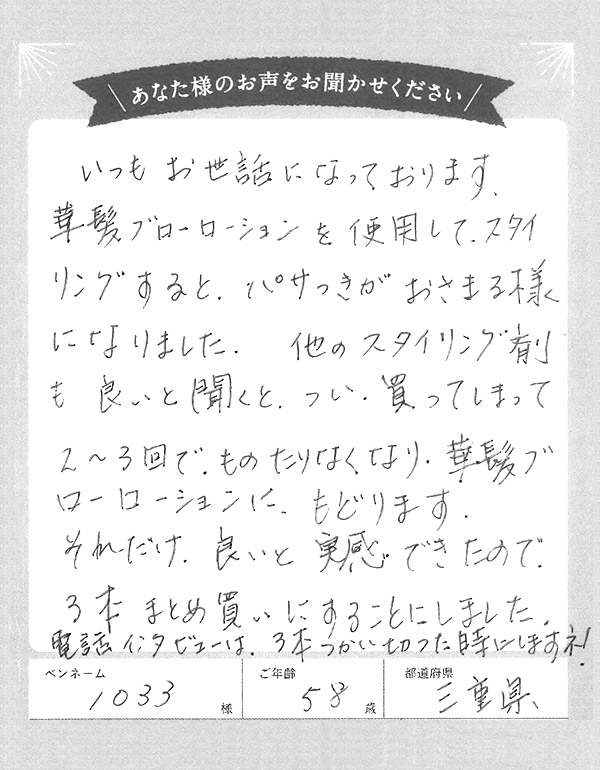 あなた様のお声をお聞かせください
いつもお世話になっております.
華髪ブローローションを使用して、スタイ
リングすると、パサつきがおさまる様
になりました. 他のスタイリング剤
も良いと聞くと、つい、買ってしまって
2〜3回で、ものたりなくなり、華髪ブ
ローローションに、もどります.
それだけ、良いと実感できたので、
3本まとめ買いにすることにしました.
電話インタビューは、3本つかい切った時にしますネ!
ペンネーム ご年齢 都道府県
1033様 58歳 三重県